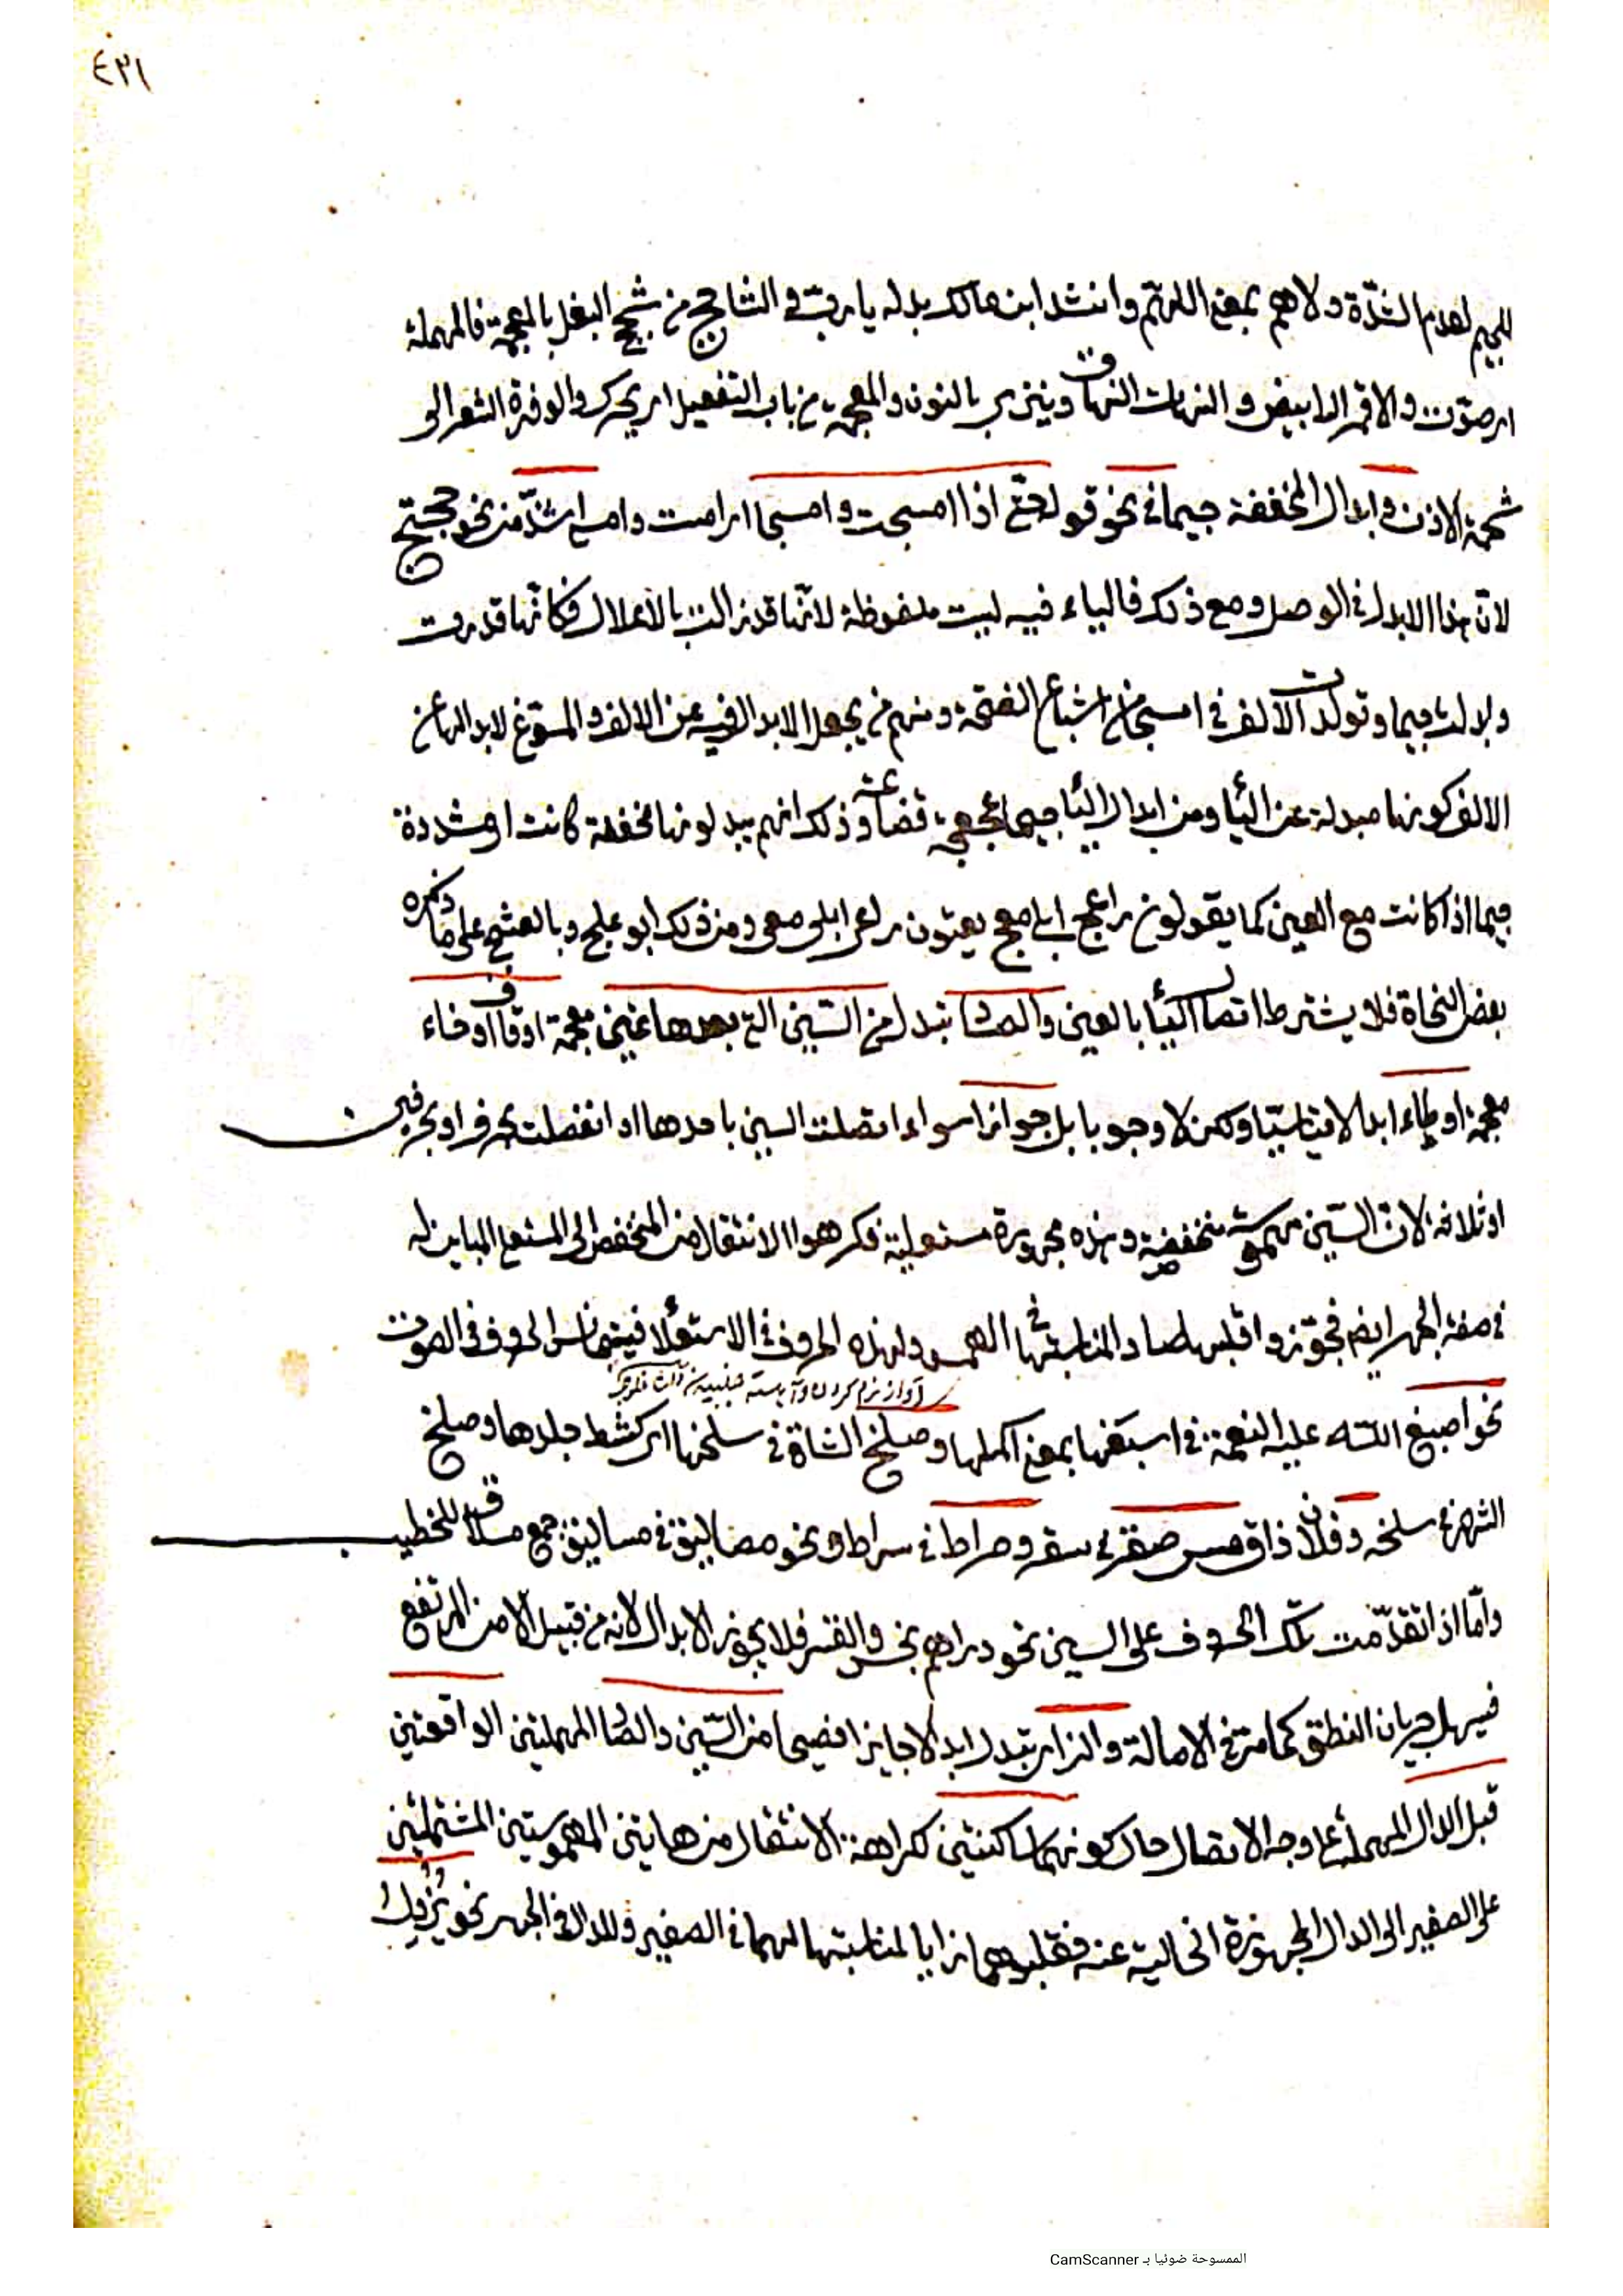 ٤٣١
للجيم لعدم الشدّة ولاهم بمعنى اللهمّ وانشد ابن مالك بدله يا ربّ والشاحج من شحج البغل بالمعجمة فالمهملة
اى صوّت والاقمر الابيض والنهات النهاق وينزى بالنون والمعجمة من باب التفعيل اى يحرك والوفرة الشعر الى
شحمة الاذن وابدال المخففة جيما فى نحو قوله حتى اذا امسجت وامسجا اى امست وامسى اشذّ من نحو حجتج
لانّ هذا الابدال فى الوصل ومع ذلك فالياء فيه ليست ملفوظة لانّها قد زالت بالاعلال فكانّها قدرت
وابدلت جيما وتولدت الالف فى امسجا من اشباع الفتحة ومنهم من يجعل الابدال فيه عن الالف والمسوّغ لابدالها عن
الالف كونها مبدلة عن الئا ومن ابدال الئا جيما عجعجة قضاعة وذلك انهم يبدلونها مخففة كانت او مشددة
جيما اذا كانت مع العين كما يقولون راعج ابلج معج يعنون راعى ابلى معى ومن ذلك ابو علج وبالعشج على ما ذكره
بعض النحاة فلا يشترط اتصال الئا بالعين والصاد تبدل من السّين التى بعدها غين معجمة او قاف او خاء
معجمة او طاء ابدالا قياسيّا ولكن لا وجوبا بل جوازا سواء اتصلت السين باحدها او انفصلت بحرف او بحرفين
او ثلاثة لانّ السّين مهموسة منخفضة وهذه مجهورة مستعلية فكرهوا الانتقال من المنخفض الى المستعلى المباين له
فى صفة الجهر ايضا فجوّزوا قلبها صادا لمناسبتها فى الهمس ولهذه الحروف فى الاستعلٔا فيتجانس الحروف فى الصوت
آواز نرم كردن
نحو اصبغ اللّٰه عليه النعمة فى اسبغها بمعنى اكملها وصلخ الشاة فى سلخها اى كشط جلدها وصلخ
الشهر فى سلخه وفلان ذاق مسّ صقر فى سقر وصراط فى سراط ونحو مصاليق فى مساليق جمع مسلاق للخطيب
وامّا اذا تقدّمت تلك الحروف على السين نحو دراهم بخس والقسر فلا يجوز الابدال لانه من قبيل الامن المرتفع
فيسهل جريان النطق كما مرّ فى الامالة والزاى تبدل ابدالا جايزا فصيحا من السّين والصّاد المهملتين الواقعتين
قبل الدال المهملة على وجه الاتصال حال كونهما ساكنتين كراهة الانتقال من هايتن المهموستين المشتملتين
على الصفير الى الدال المجهورة الخالية عنه فقلبوهما زايا لمناسبتها لهما فى الصفير وللدال فى الجهر نحو يُزْدِلُ
الممسوحة ضوئيا بـ CamScanner